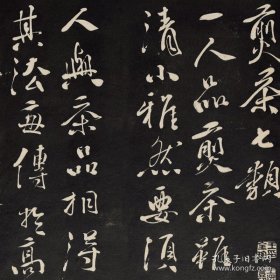 煎茶七類
一人品煎茶雖
清小雅然要須
人與茶品相得
其法每傳於高
孔夫子旧书网